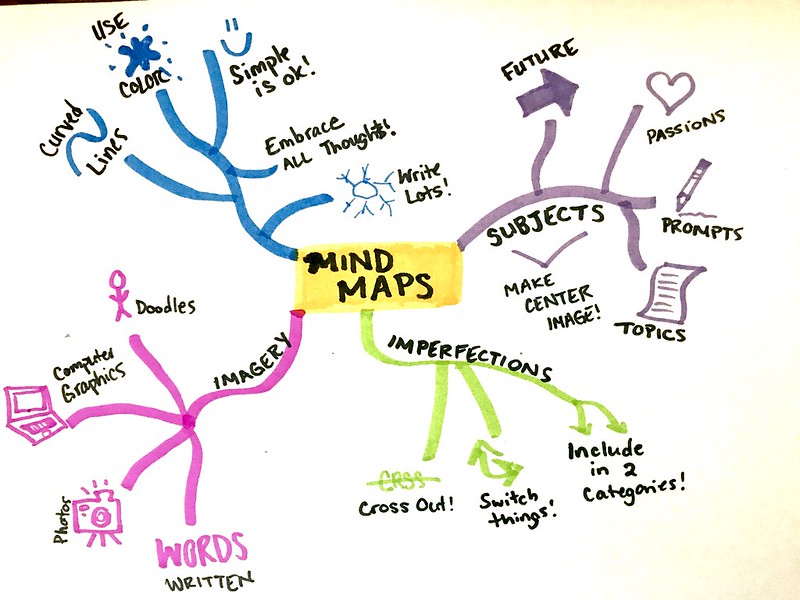 MIND
MAPS
USE
COLOR
Simple
is ok!
Curved
Lines
Embrace
ALL Thought$!
Write
Lots!
SUBJECTS
FUTURE
PASSIONS
PROMPTS
TOPICS
MAKE
CENTER
IMAGE!
IMPERFECTIONS
CRSS
Cross Out!
Switch
things!
Include
in 2
Categories!
IMAGERY
Doodles
Computer
Graphics
Photos
WORDS
WRITTEN